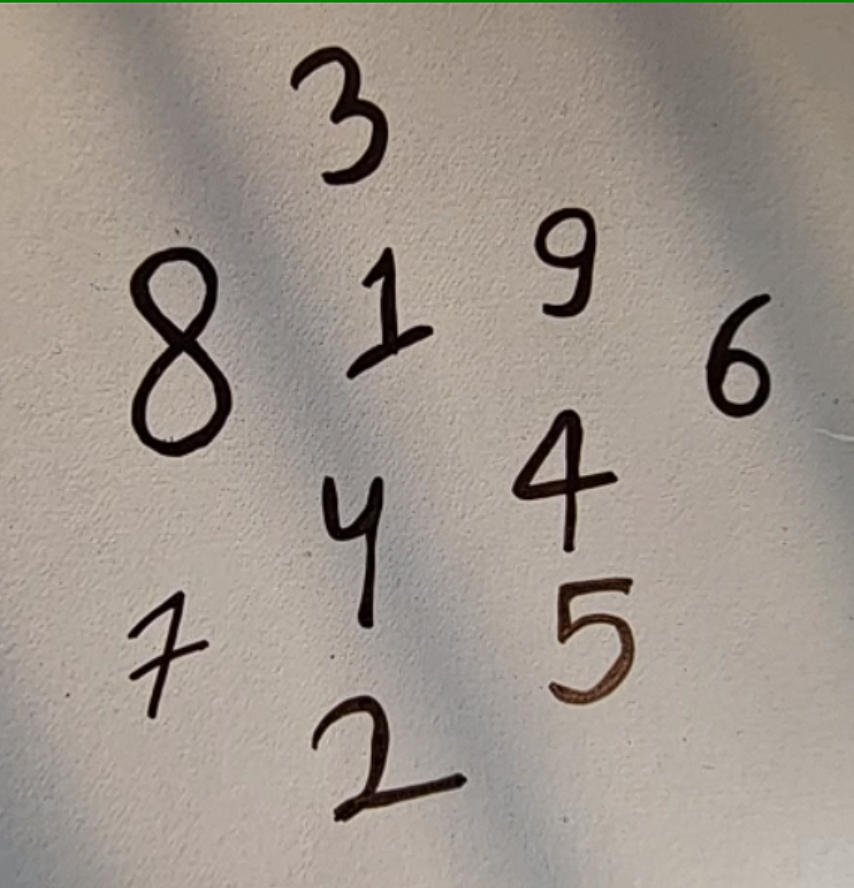 3
8 1 9 6
4 4
7 5
2